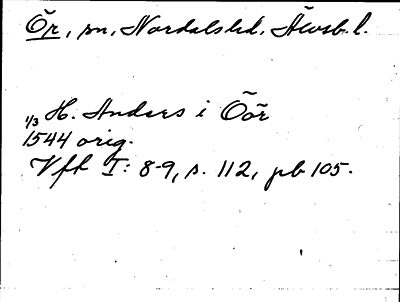 Ör, sn, Nordalshd, Älvsb. l.
1/3 H. Anders i Öör
1544 orig.
Vfh I: 8-9, s. 112, ph 105.